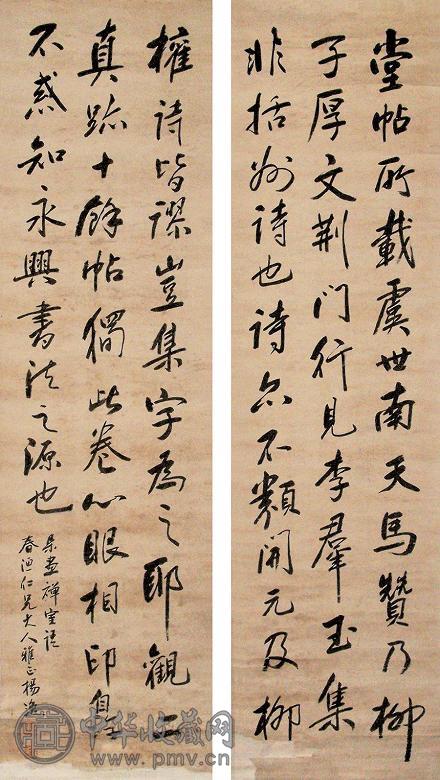 堂帖所載虞世南天馬贊乃柳
子厚文荊門行見李羣玉集
非括州詩也詩亦不類開元及柳
權詩皆謬豈集字為之耶觀
真跡十餘帖獨此卷心眼相印
不惑知永興書法之源也
畫禪室語
春漁仁兄大人雅正楊逸
中华收藏网
www.pmv.cn